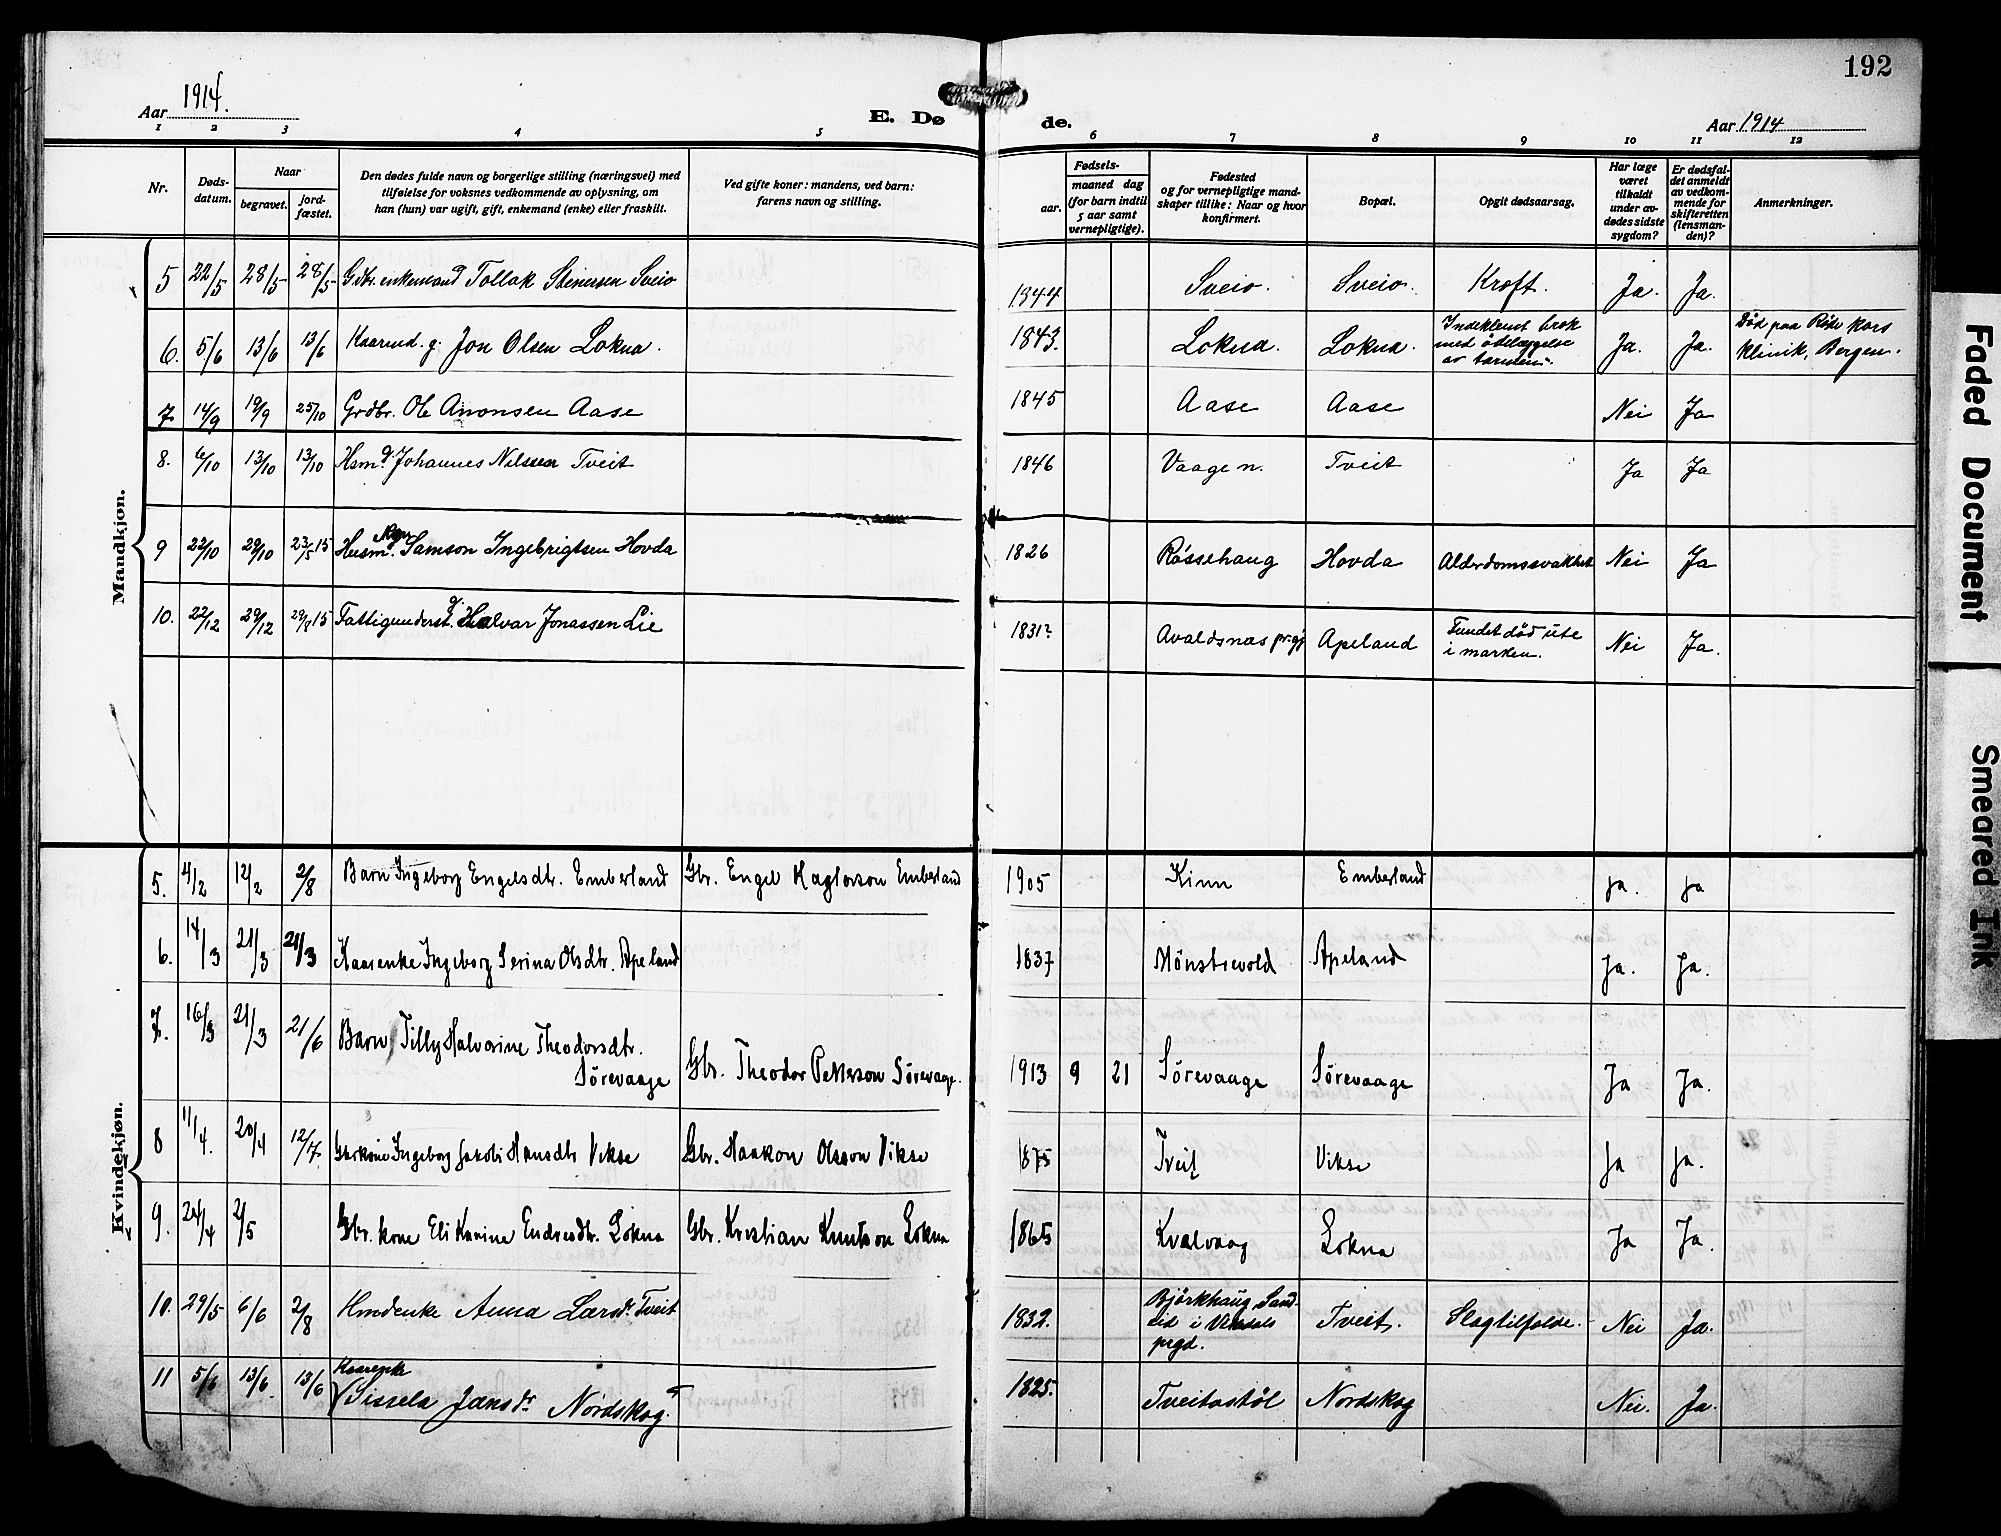 192
Aar 1914.
E. Dø de.
Aar 1914
1 2 3 4 5 6 7 8 9 10 11 12
Nr.
Døds-
datum.
Naar
begravet.
jord-
fæstet.
Den dødes fulde navn og borgerlige stilling (næringsvei) med
tilføielse for voksnes vedkommende av oplysning, om
han (hun) var ugift, gift, enkemand (enke) eller fraskilt.
Ved gifte koner: mandens, ved barn:
farens navn og stilling.
Fødsels-
aar.
maaned dag
(for barn indtil
5 aar samt
vernepligtige).
Fødested
og for vernepligtige mand-
skaper tillike: Naar og hvor
konfirmert.
Bopæl.
Opgit dødsaarsag.
Har læge
været
tilkaldt
under av-
dødes sidste
sygdom?
Er dødsfal-
det anmeldt
av vedkom-
mende for
skifteretten
(lensman-
den)?
Anmerkninger.
Mandkjøn.
5 22/5 28/5 28/5 Gdbr. enkemand Tollak Steinersen Sveio 1844 Sveio. Sveio. Kræft. Ja. Ja.
6. 5/6 13/6 13/6 Kaarmd. g. Jon Olsen Lokna. 1843. Lokna. Lokna. Indeklemt brok
med ödelæggelse
av tarmen. Ja. Ja. Död paa Röde Kors
klinik, Bergen.
7 14/9 19/9 25/10 Grdbr. Ole Amonsen Aase 1845 Aase Aase Nei Ja
8. 6/10 13/10 13/10 Hsm. g. Johannes Nilssen Tveit 1846 Vaagen. Tveit Ja Ja
9 22/10 29/10 23/5 15 Husm. Samson Ingebrigtsen Hovda 1826 Røssehaug Hovda Alderdomssvakhet Nei Ja
10. 22/12 29/12 29/8 15 Fattigunderst. g. Halvar Jonassen Lie 1831? Avaldsnas prgj Apeland Fundet död ute
i marken. Nei Ja.
Kvindekjøn.
5. 4/2 12/2 2/8 Barn Ingeborg Engelsdtr. Emberland Gbr. Engel Emberland 1905 Kinn Emberland ja. ja
6. 14/3 21/3 21/3 Kaarenke Ingeborg Serina Olsdtr. Apeland 1837 Mønstrevold Apeland Ja. Ja.
7. 16/3 21/3 21/6 Barn Tilly Halvorine Theodorsdtr.
Sörevaage Gbr. Theodor Petterson Sørevaage. 1913 9 21 Sörevaage Sörevaage Ja Ja.
8 11/4. 20/4 12/7. Gbrkone Ingeborg Jakobi Hansdtr Vikse Gbr. Haakon Olsson Vikse 1875 Tveit Vikse Ja Ja.
9. 24/4 2/5 Gbr. kone Eli Karine Endresdtr. Lokna Gbr. Kristian Knutson Lokna 1865 Kvalvaag Lokna Ja Ja.
10. 29/5 6/6 2/8 Hmdenke Anna Larsdr. Tveit 1832. Björkhaug, Sand-
eid i Vikedals
prgd. Tveit. Slagtilfælde. Nei Ja.
11 5/6 13/6 13/6 Kaarenke
Sissela Jansdr Nordskog. 1825. Tveitastöl Nordskog Nei. Ja.
Faded Document
Smeared Ink